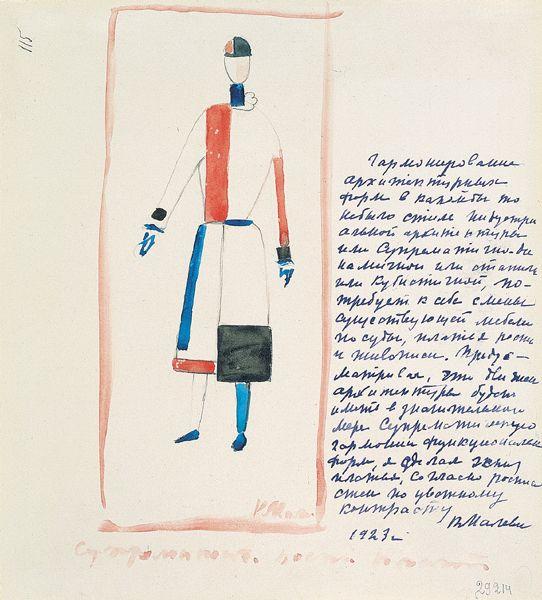 115
Гармонирование
архитектурных
форм в какой бы то
небыло стиле индустри
альной архитектуры
или Супрематично-ди
намичной или статич
или Кубистичной, по-
требует к себе смены
существующей мебели
посуды, платья росписи
и живописи. Преду-
матривая, что движен
архитектуры будет
иметь в значительной
мере Супрематическую
гармонию функциональн
форм, я сделал эскиз
платья, согласно росписи
стен по цветному
контрасту
К Малеви
1923 г
К Мал
Супрематич.
29214